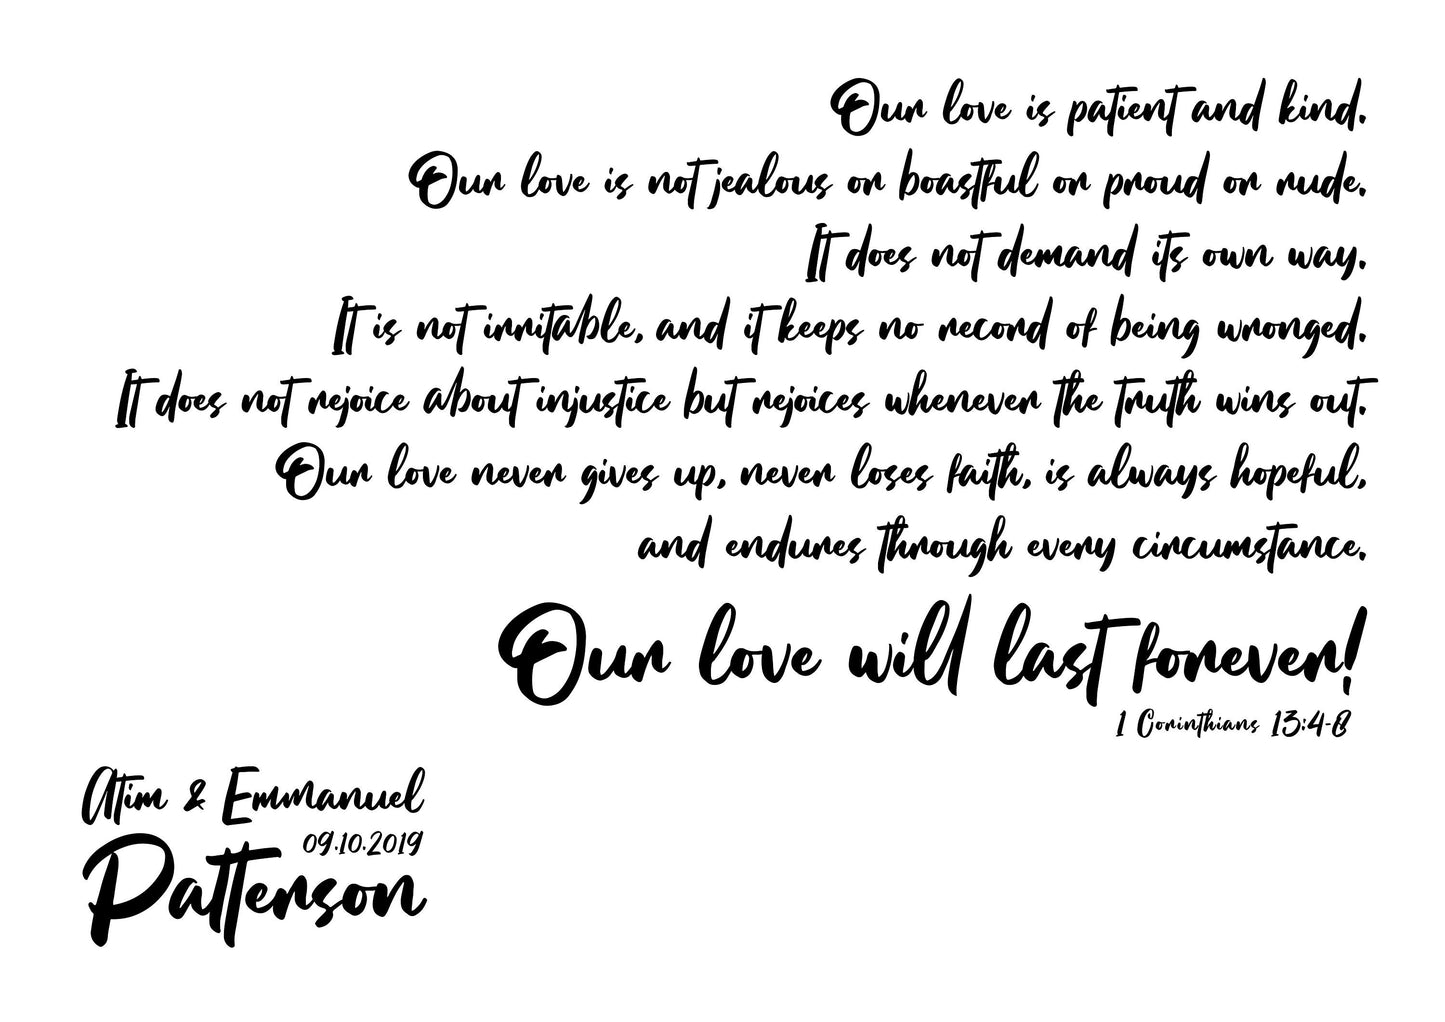 Our love is patient and kind.
Our love is not jealous or boastful or proud or rude.
It does not demand its own way.
It is not irritable, and it keeps no record of being wronged.
It does not rejoice about injustice but rejoices whenever the truth wins out.
Our love never gives up, never loses faith, is always hopeful,
and endures through every circumstance.
Our love will last forever!
1 Corinthians 13:4-8
Atim & Emmanuel
09.10.2019
Patterson